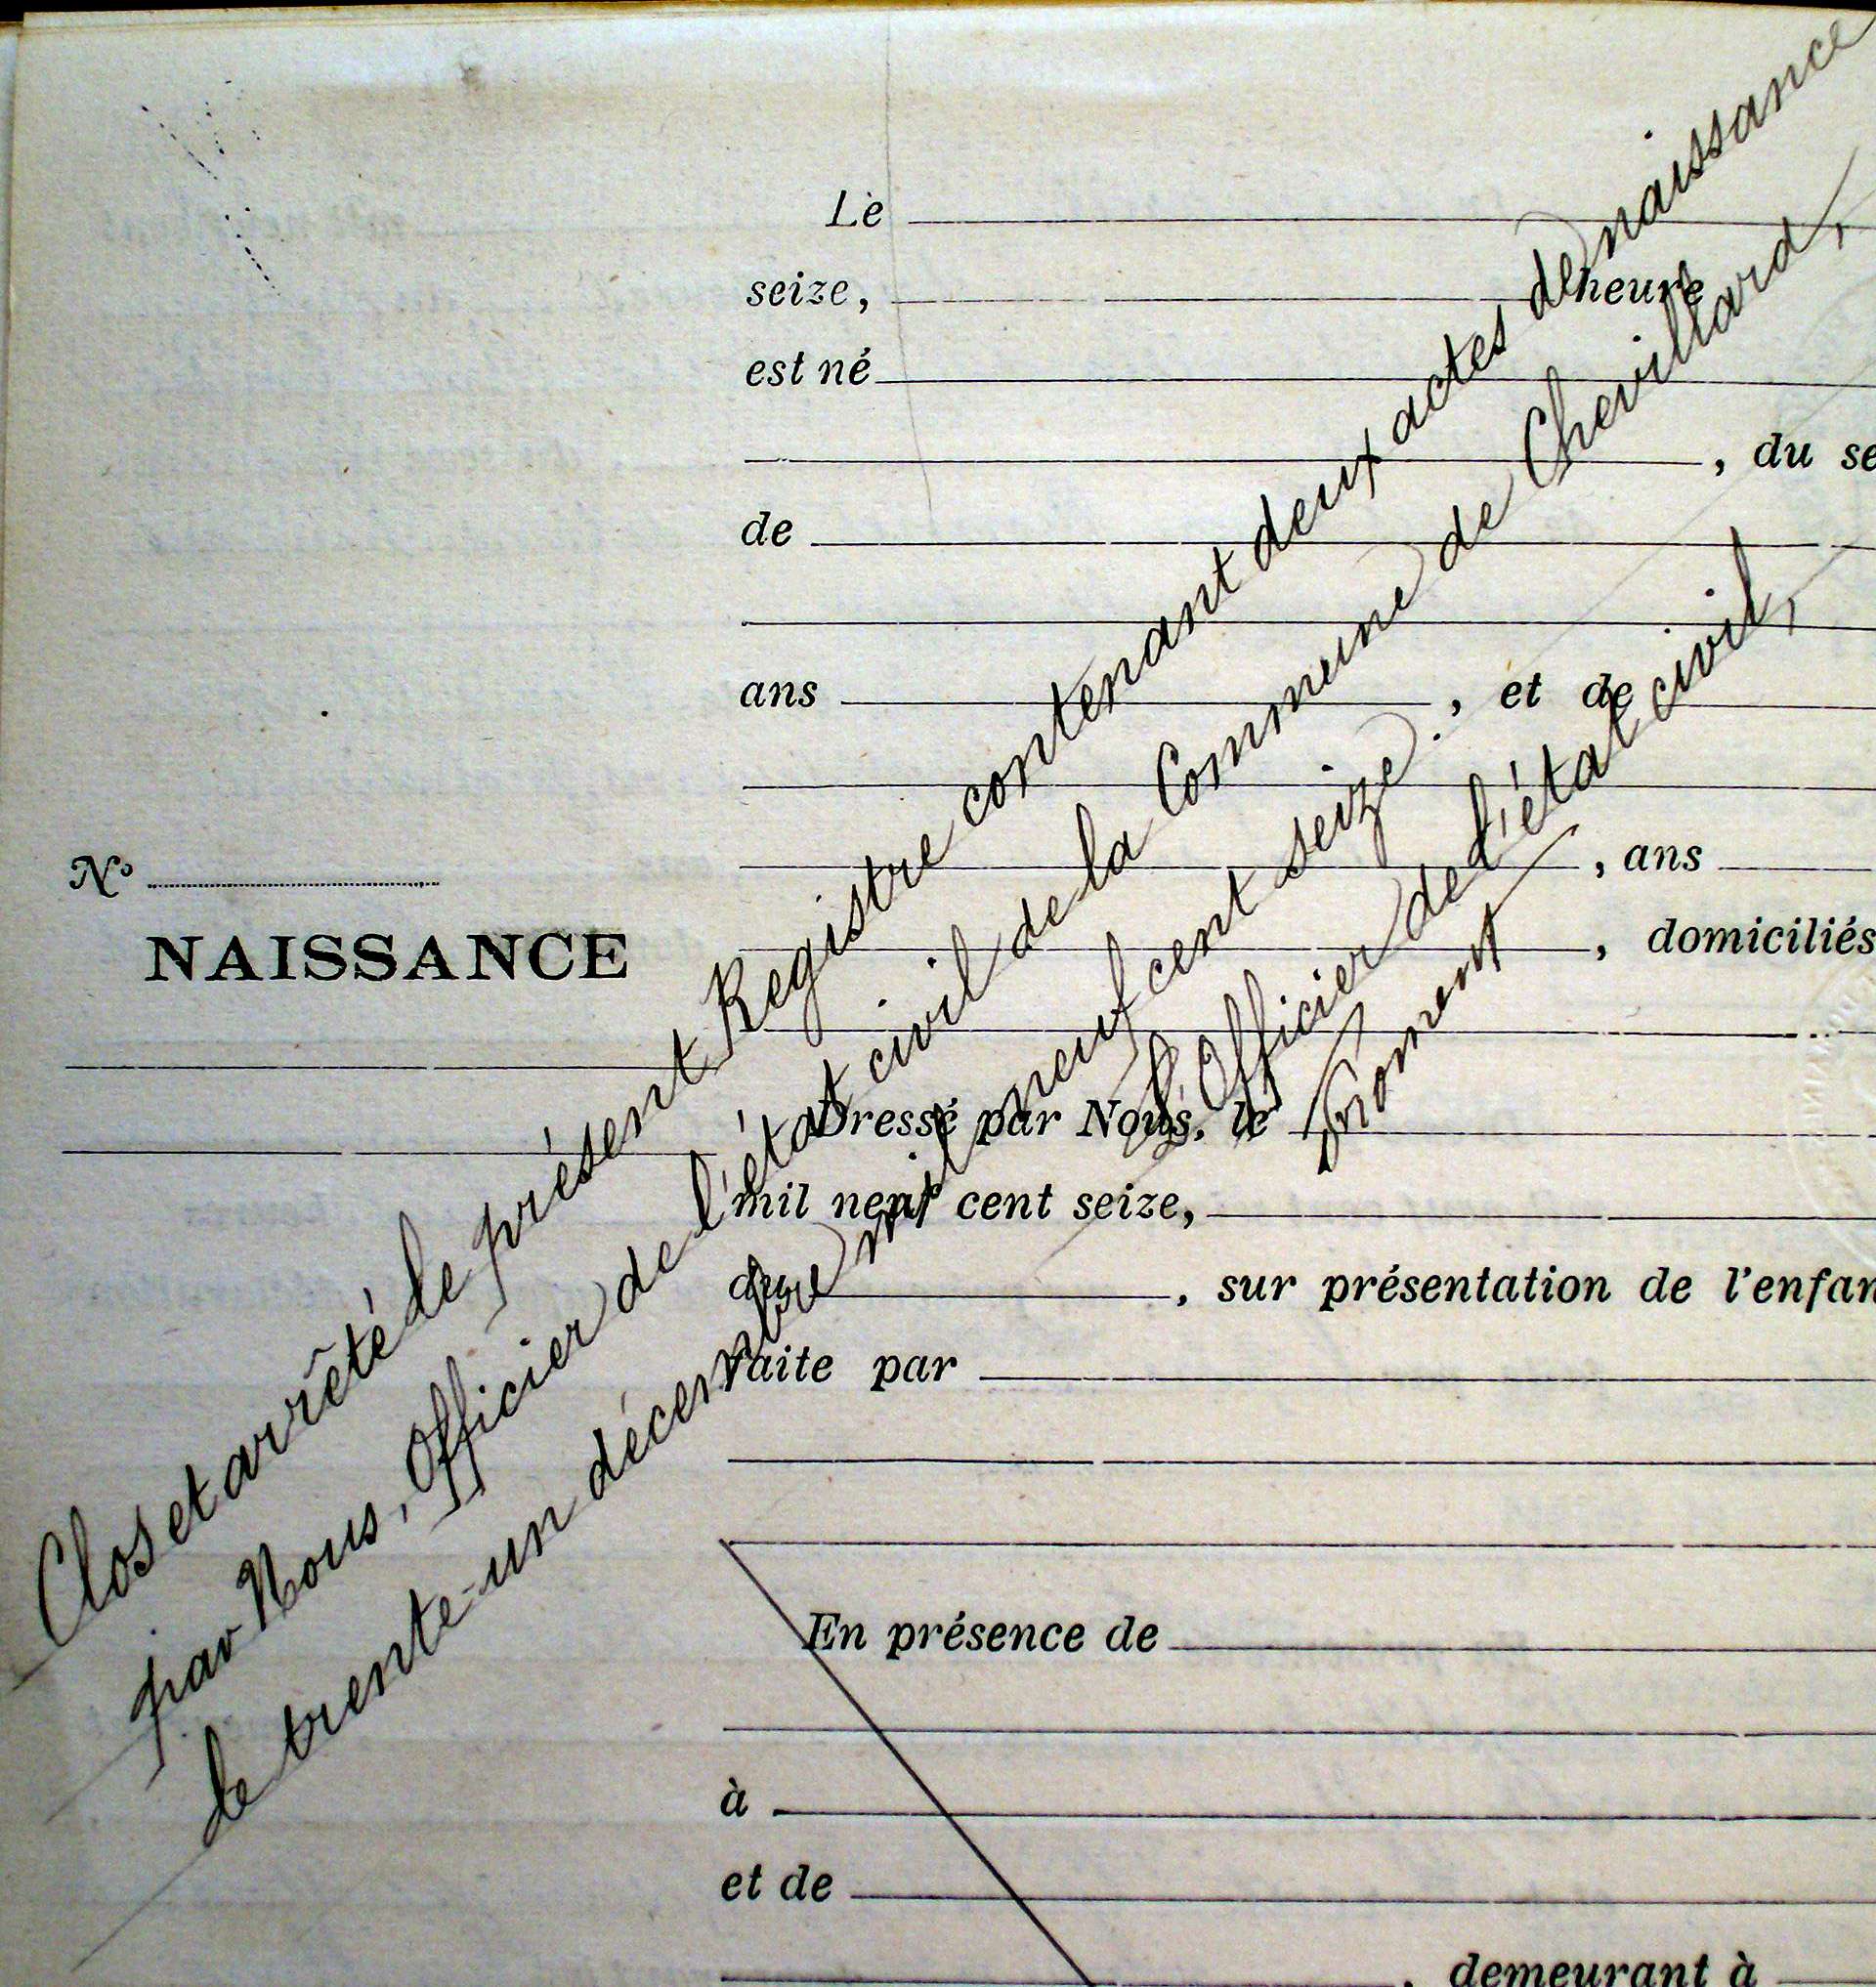 Le
seize, heure
est né
, du se
de
ans , et de
, ans
, domiciliés
Nº
NAISSANCE
Dressé par Nous, le
mil neuf cent seize,
du , sur présentation de l'enfan
faite par
En présence de
à
et de
, demeurant à
Clos et arrêté le présent Registre contenant deux actes de naissance
par Nous, Officier de l'état civil de la Commune de Chevillard,
le trente-un décembre mil neuf cent seize.
L'Officier de l'état civil,